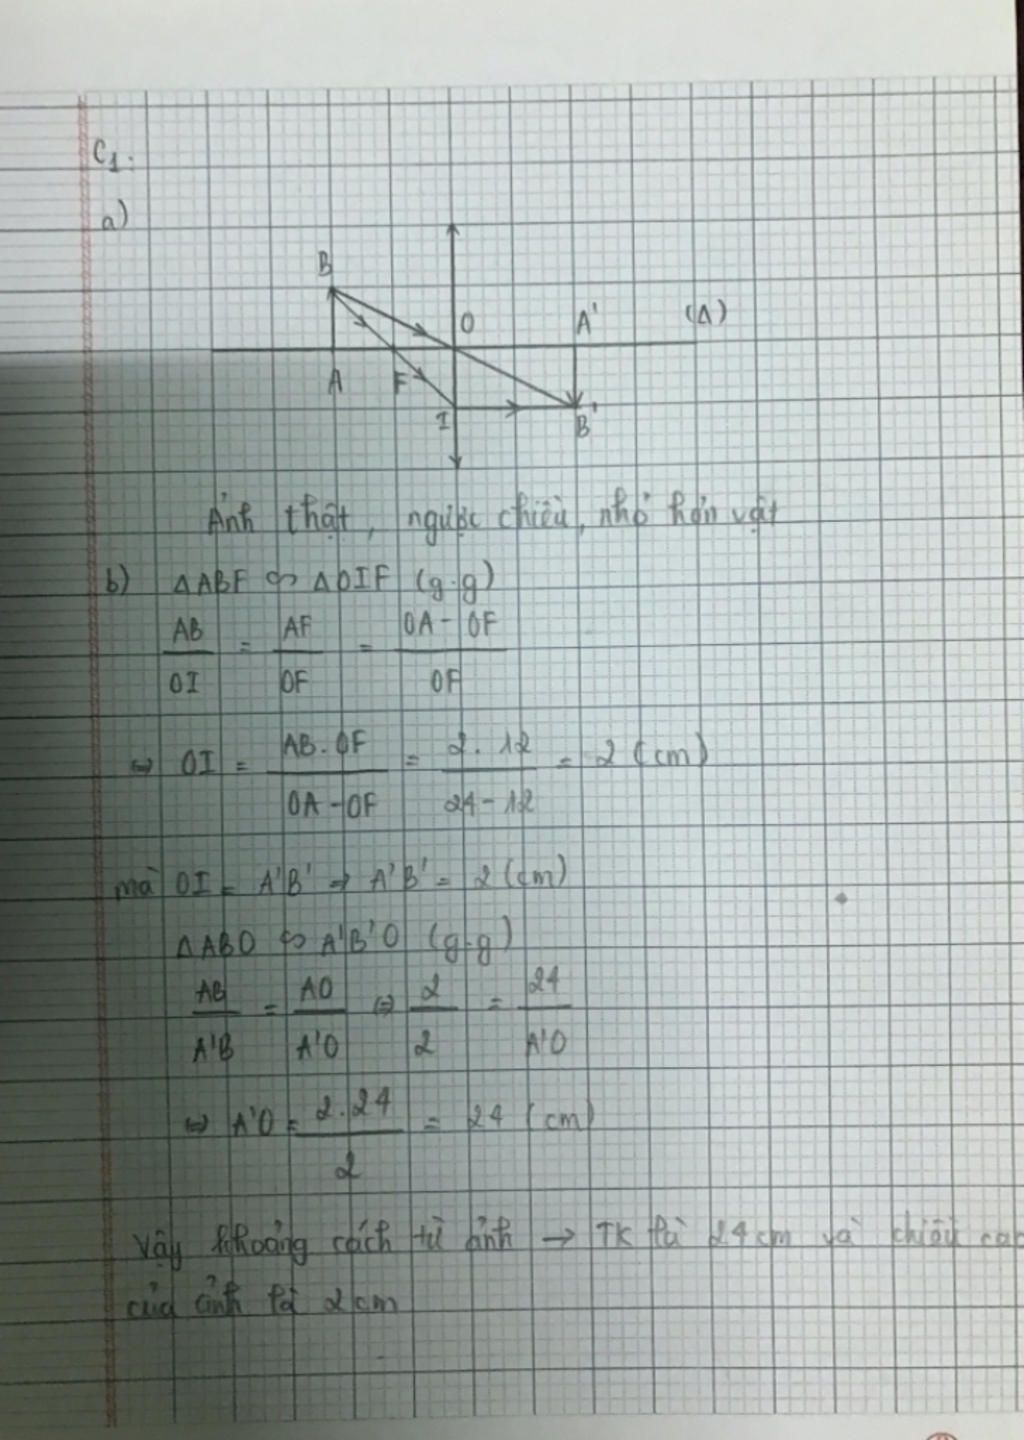 C1.
a)
B
O A' (Δ)
A F
I B'
Ảnh thật, ngược chiều, nhỏ hơn vật
b) ΔABF ∽ ΔOIF (g.g)
AB/OI = AF/OF = OA - OF/OF
⇔ OI = AB.OF/OA - OF = 2.12/24 - 12 = 2 (cm)
mà OI = A'B' ⇒ A'B' = 2 (cm)
ΔABO ∽ A'B'O (g.g)
AB/A'B = AO/A'O ⇔ 2/2 = 24/A'O
⇔ A'O = 2.24/2 = 24 (cm)
Vậy khoảng cách từ ảnh → TK là 24cm và chiều cao
của ảnh là 2cm